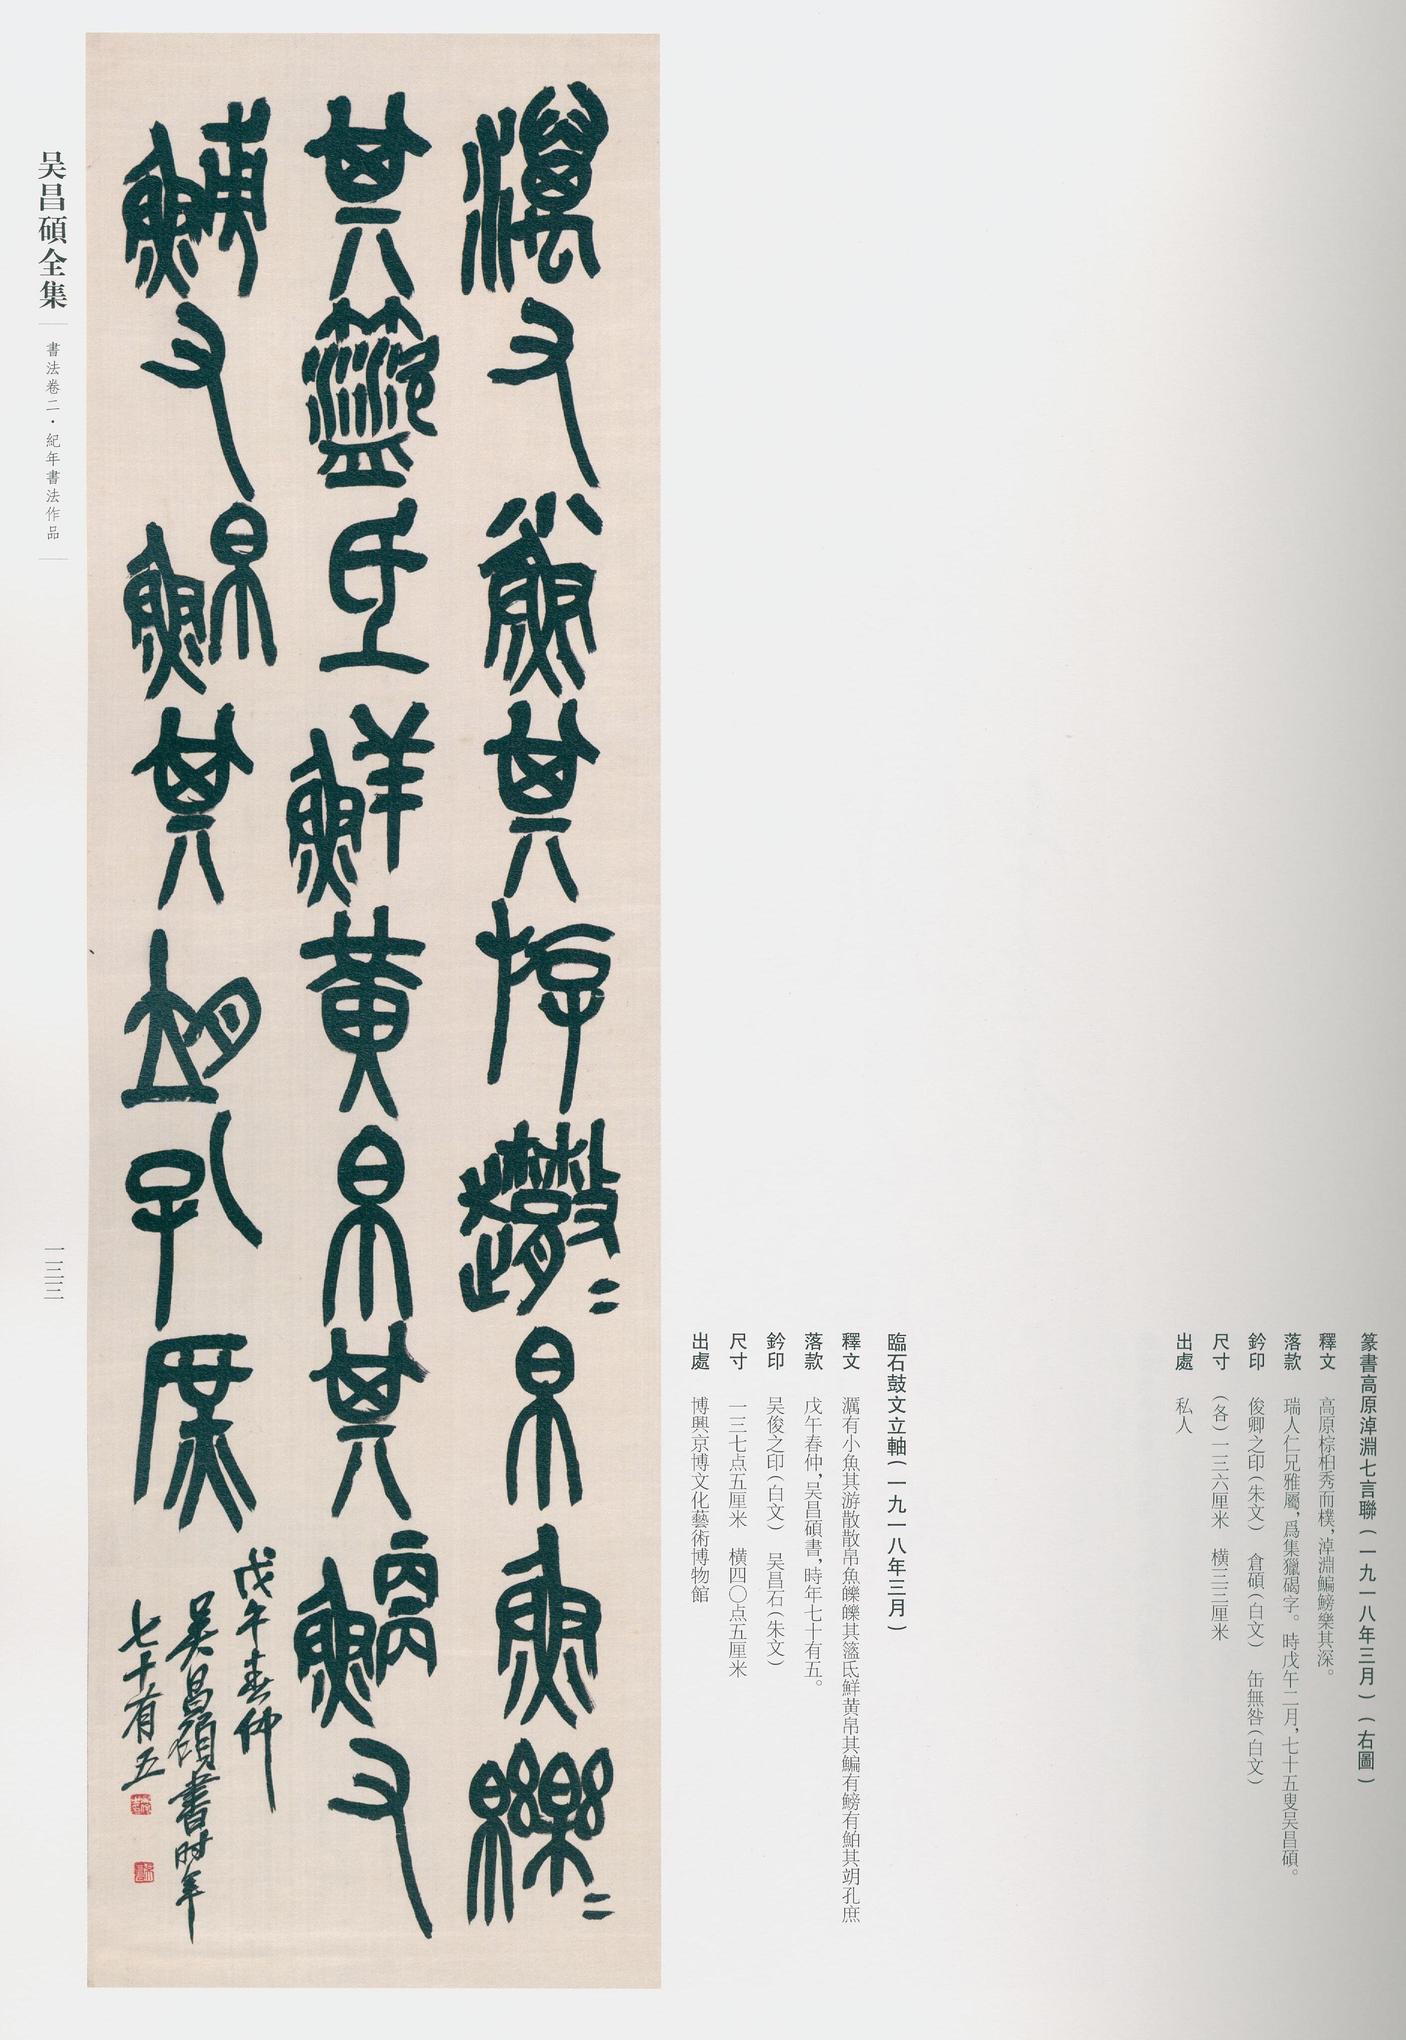 篆書高原淖淵七言聯（一九一八年三月）（右圖）
釋文 高原棕柏秀而樸，淖淵鯿鰟樂其深。
落款 瑞人仁兄雅屬，爲集獵碣字。時戊午二月，七十五叟吴昌碩。
鈐印 俊卿之印（朱文） 倉碩（白文） 缶無咎（白文）
尺寸 （各）一三六厘米 橫三三厘米
出處 私人
臨石鼓文立軸（一九一八年三月）
釋文 澫有小魚其游散散帛魚皪皪其盜氐鮮黄帛其鯿有鰟有鮊其翊孔庶
落款 戊午春仲，吴昌碩書，時年七十有五。
鈐印 吴俊之印（白文） 吴昌石（朱文）
尺寸 一三七点五厘米 橫四〇点五厘米
出處 博興京博文化藝術博物館
澫又小魚其斿散〻帛魚皪〻
其盜氐鮮黄帛其鯿又
鯆又鮊其翊孔庶
戊午春仲
吴昌碩書時年
七十有五
吴昌碩全集
書法卷二·紀年書法作品
一三三